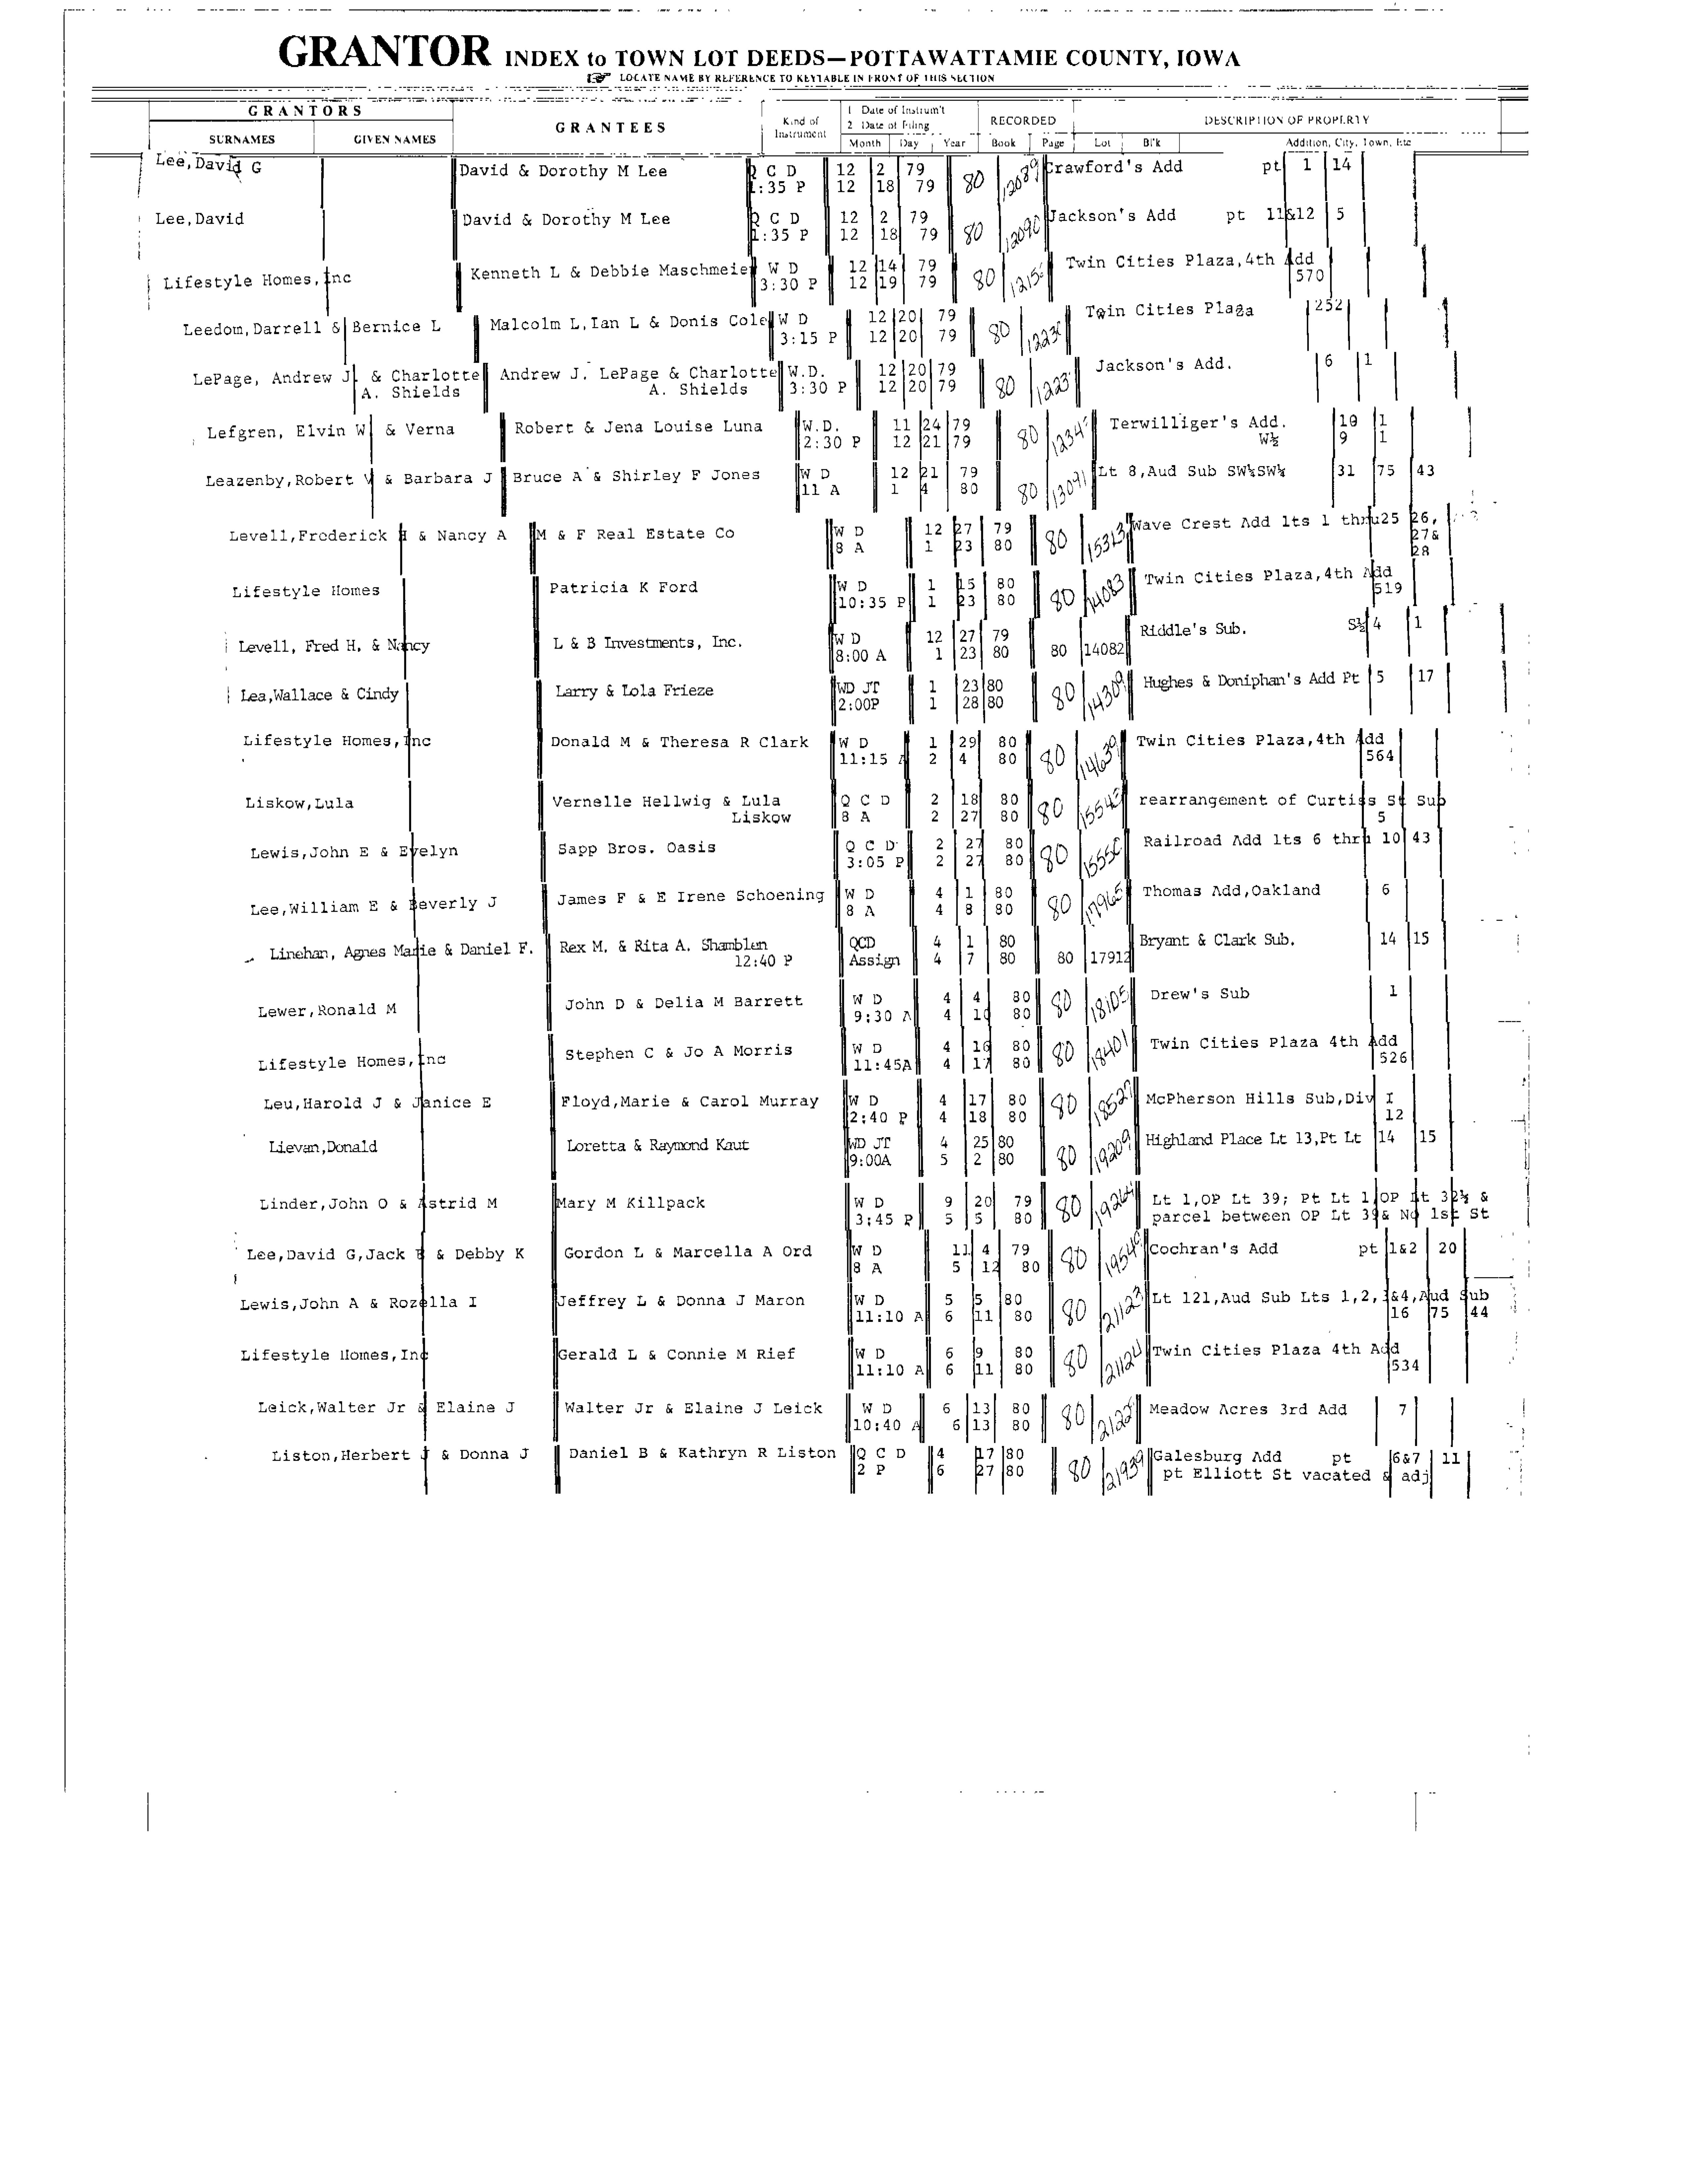 GRANTOR INDEX to TOWN LOT DEEDS—POTTAWATTAMIE COUNTY, IOWA
☞ LOCATE NAME BY REFERENCE TO KEYTABLE IN FRONT OF THIS SECTION
GRANTORS GRANTEES Kind of Instrument 1 Date of Instrum't 2 Date of Filing RECORDED DESCRIPTION OF PROPERTY
SURNAMES GIVEN NAMES Month Day Year Book Page Lot Bl'k Addition, City, Town, Etc
Lee,David G David & Dorothy M Lee Q C D 12 2 79 80 12089 Crawford's Add pt 1 14
1:35 P 12 18 79
Lee,David David & Dorothy M Lee Q C D 12 2 79 80 12090 Jackson's Add pt 11&12 5
1:35 P 12 18 79
Lifestyle Homes,Inc Kenneth L & Debbie Maschmeie W D 12 14 79 80 Twin Cities Plaza,4th Add
3:30 P 12 19 79 570
Leedom,Darrell & Bernice L Malcolm L,Ian L & Donis Cole W D 12 20 79 80 Twin Cities Plaza 252
3:15 P 12 20 79
LePage, Andrew J. & Charlotte Andrew J. LePage & Charlotte W.D. 12 20 79 80 Jackson's Add. 6 1
A. Shields A. Shields 3:30 P 12 20 79
Lefgren, Elvin W & Verna Robert & Jena Louise Luna W.D. 11 24 79 80 Terwilliger's Add. 10 1
2:30 P 12 21 79 W½ 9 1
Leazenby,Robert V & Barbara J Bruce A & Shirley F Jones W D 12 21 79 80 13091 Lt 8,Aud Sub SW¼SW¼ 31 75 43
11 A 1 4 80
Levell,Frederick H & Nancy A M & F Real Estate Co W D 12 27 79 80 15313 Wave Crest Add lts 1 thru25 26,
8 A 1 23 80 27&
28
Lifestyle Homes Patricia K Ford W D 1 15 80 80 14083 Twin Cities Plaza,4th Add
10:35 P 1 23 80 519
Levell, Fred H. & Nancy L & B Investments, Inc. W D 12 27 79 Riddle's Sub. S½ 4 1
8:00 A 1 23 80 80 14082
Lea,Wallace & Cindy Larry & Lola Frieze WD JT 1 23 80 80 14309 Hughes & Doniphan's Add Pt 5 17
2:00P 1 28 80
Lifestyle Homes,Inc Donald M & Theresa R Clark W D 1 29 80 80 14639 Twin Cities Plaza,4th Add
11:15 A 2 4 80 564
Liskow,Lula Vernelle Hellwig & Lula Q C D 2 18 80 80 rearrangement of Curtiss St Sub
Liskow 8 A 2 27 80 5
Lewis,John E & Evelyn Sapp Bros. Oasis Q C D 2 27 80 80 15550 Railroad Add lts 6 thru 10 43
3:05 P 2 27 80
Lee,William E & Beverly J James F & E Irene Schoening W D 4 1 80 80 17965 Thomas Add,Oakland 6
8 A 4 8 80
Linehan, Agnes Marie & Daniel F. Rex M. & Rita A. Shamblen QCD 4 1 80 Bryant & Clark Sub. 14 15
12:40 P Assign 4 7 80 80 17912
Lewer,Ronald M John D & Delia M Barrett W D 4 4 80 80 18105 Drew's Sub 1
9:30 A 4 10 80
Lifestyle Homes,Inc Stephen C & Jo A Morris W D 4 16 80 80 18401 Twin Cities Plaza 4th Add
11:45A 4 17 80 526
Leu,Harold J & Janice E Floyd,Marie & Carol Murray W D 4 17 80 80 18527 McPherson Hills Sub,Div I
2:40 P 4 18 80 12
Lievan,Donald Loretta & Raymond Kaut WD JT 4 25 80 80 19209 Highland Place Lt 13,Pt Lt 14 15
9:00A 5 2 80
Linder,John O & Astrid M Mary M Killpack W D 9 20 79 80 Lt 1,OP Lt 39; Pt Lt 1,OP Lt 32½ &
3:45 P 5 5 80 parcel between OP Lt 39& No 1st St
Lee,David G,Jack E & Debby K Gordon L & Marcella A Ord W D 11 4 79 80 Cochran's Add pt 1&2 20
8 A 5 12 80
Lewis,John A & Rozella I Jeffrey L & Donna J Maron W D 5 5 80 80 21123 Lt 121,Aud Sub Lts 1,2,3&4,Aud Sub
11:10 A 6 11 80 16 75 44
Lifestyle Homes,Inc Gerald L & Connie M Rief W D 6 9 80 80 21124 Twin Cities Plaza 4th Add
11:10 A 6 11 80 534
Leick,Walter Jr & Elaine J Walter Jr & Elaine J Leick W D 6 13 80 80 Meadow Acres 3rd Add 7
10:40 A 6 13 80
Liston,Herbert J & Donna J Daniel B & Kathryn R Liston Q C D 4 17 80 80 21939 Galesburg Add pt 6&7 11
2 P 6 27 80 pt Elliott St vacated & adj